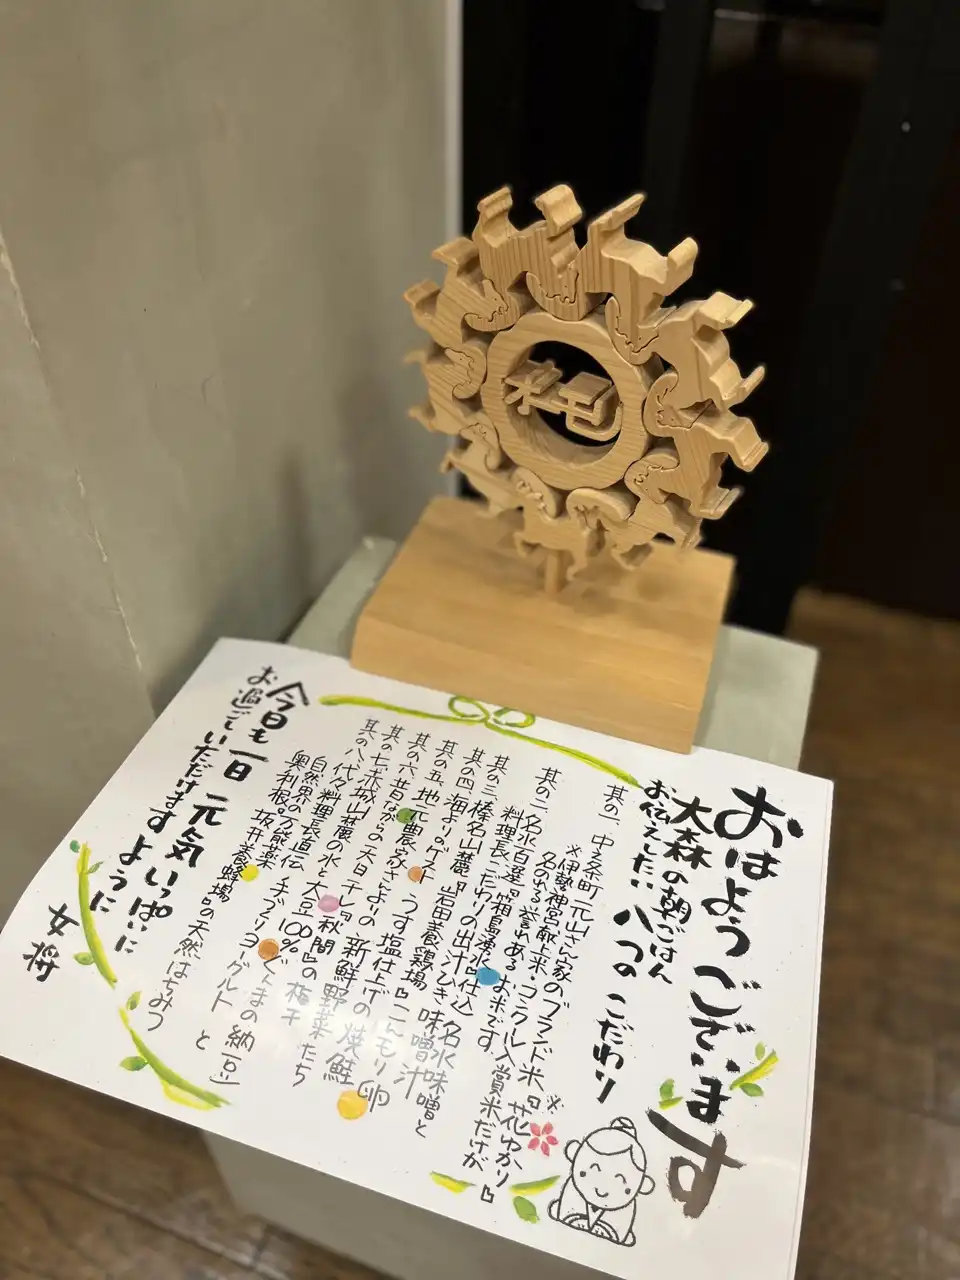 おはようございます
大森の朝ごはん
お伝えしたい 八つの こだわり
其の一 中之条町 元山さん家のブランド米『花ゆかり』
※伊勢神宮献上米・コンクール入賞米だけが
名のれる誉れあるお米です
其の二 名水百選『箱島湧水』仕込 名水味噌と
料理長こだわりの出汁ひき、味噌汁
其の三 榛名山麓『岩田養鶏場』こんもり卵
其の四 海よりのゲスト うす塩仕上げの焼鮭
其の五 地元農家さんよりの新鮮野菜たち
其の六 昔ながらの天日干し『秋間』の梅干
其の七 赤城山麓の水と大豆100%ぐんまの納豆
其の八 代々料理長直伝 手づくりヨーグルト と
自然界の万能薬 坂井養蜂場の天然はちみつ
(奥利根)
今日も一日 元気いっぱいに
お過ごしいただけますように
女将